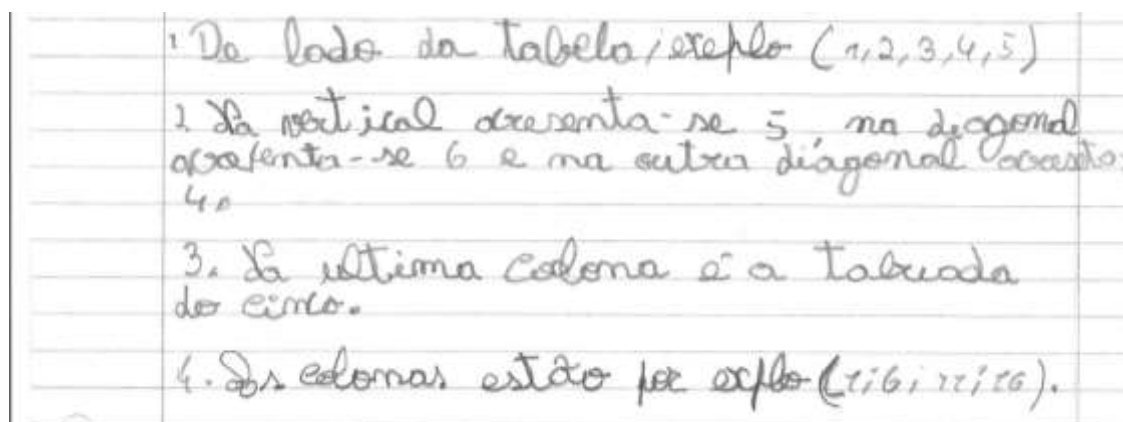 1. De lado da tabela, exeplo (1,2,3,4,5)
2. Na vertical acresenta-se 5, na diagonal
acresenta-se 6 e na outra diágonal
4.
3. Na ultima colona é a tabuada
do cinco.
4. As colonas estão por exeplo (1; 6; 11; 16).